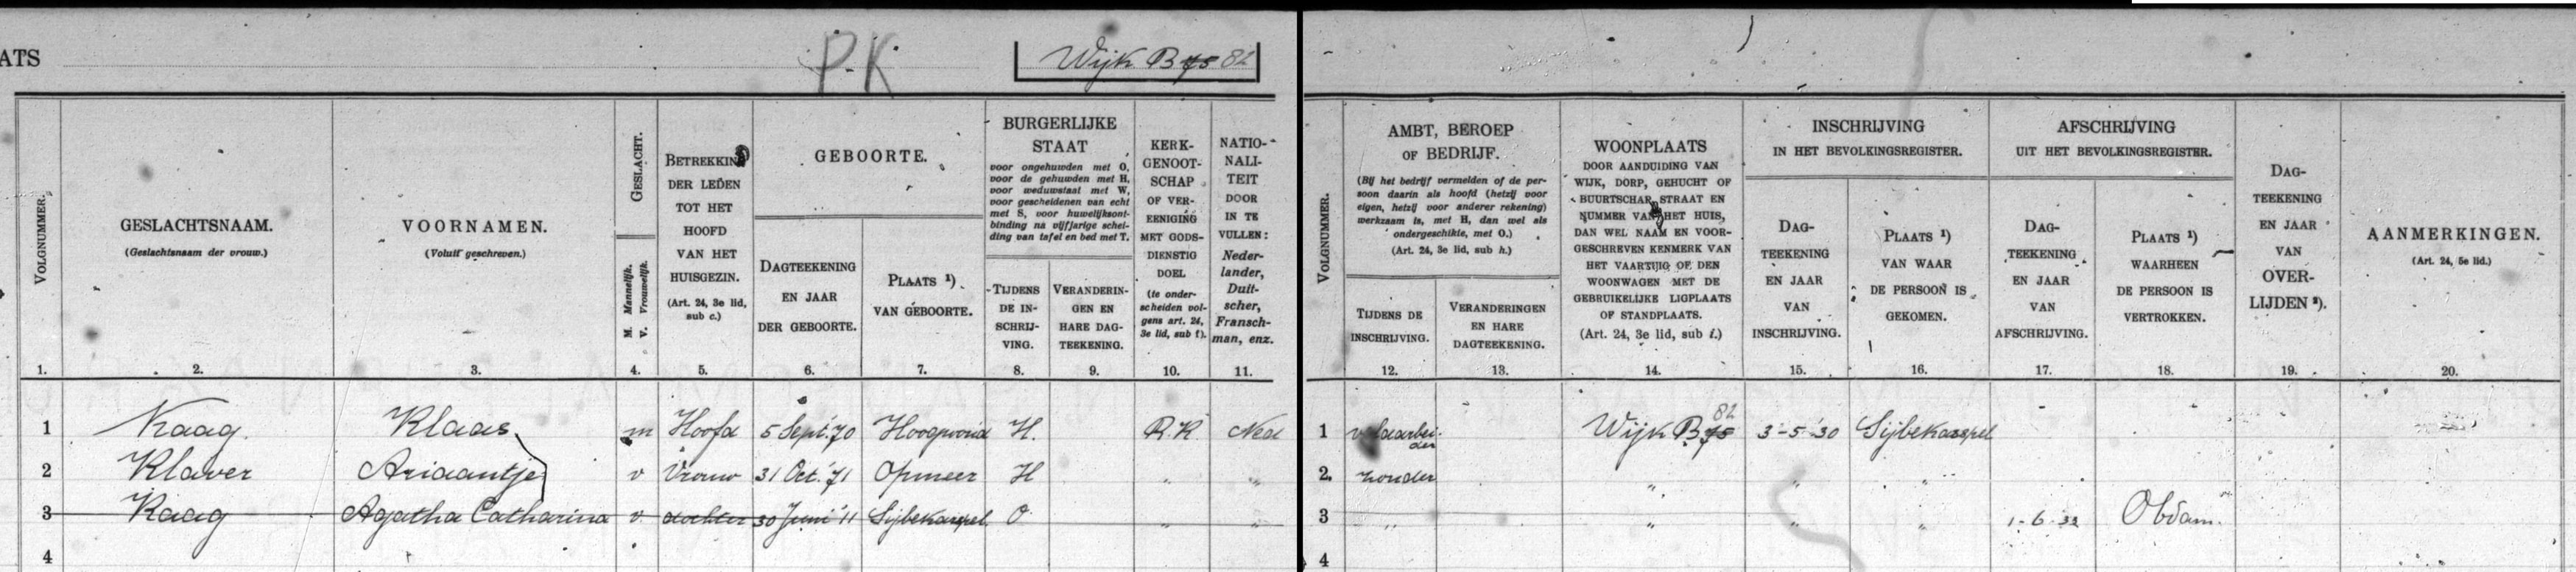 ATS
P.K
Wijk B 75 82
VOLGNUMMER.
GESLACHTSNAAM.
(Geslachtsnaam der vrouw.)
VOORNAMEN.
(Voluit geschreven.)
GESLACHT.
M. Mannelijk.
V. Vrouwelijk.
BETREKKING
DER LEDEN
TOT HET
HOOFD
VAN HET
HUISGEZIN.
(Art. 24, 3e lid,
sub c.)
GEBOORTE.
DAGTEEKENING
EN JAAR
DER GEBOORTE.
PLAATS ¹)
VAN GEBOORTE.
BURGERLIJKE
STAAT
voor ongehuwden met O,
voor de gehuwden met H,
voor weduwstaat met W,
voor gescheidenen van echt
met S, voor huwelijksont-
binding na vijfjarige schei-
ding van tafel en bed met T.
TIJDENS
DE IN-
SCHRIJ-
VING.
VERANDERIN-
GEN EN
HARE DAG-
TEEKENING.
KERK-
GENOOT-
SCHAP
OF VER-
EENIGING
MET GODS-
DIENSTIG
DOEL
(te onder-
scheiden vol-
gens art. 24,
3e lid, sub f).
NATIO-
NALI-
TEIT
DOOR
IN TE
VULLEN:
Neder-
lander,
Duit-
scher,
Fransch-
man, enz.
1. 2. 3. 4. 5. 6. 7. 8. 9. 10. 11.
1 Kaag. Klaas m Hoofd 5 Sept. '70 Hoogwoud H. R.K. Ned
2 Klaver Ariaantje v Vrouw 31 Oct. '71 Opmeer H " "
3 Kaag Agatha Catharina v dochter 30 Juni '11 Sijbekarspel O " "
4
VOLGNUMMER.
AMBT, BEROEP
OF BEDRIJF.
(Bij het bedrijf vermelden of de per-
soon daarin als hoofd (hetzij voor
eigen, hetzij voor anderer rekening)
werkzaam is, met H, dan wel als
ondergeschikte, met O.)
(Art. 24, 3e lid, sub h.)
TIJDENS DE
INSCHRIJVING.
VERANDERINGEN
EN HARE
DAGTEEKENING.
WOONPLAATS
DOOR AANDUIDING VAN
WIJK, DORP, GEHUCHT OF
BUURTSCHAP, STRAAT EN
NUMMER VAN HET HUIS,
DAN WEL NAAM EN VOOR-
GESCHREVEN KENMERK VAN
HET VAARTUIG OF DEN
WOONWAGEN MET DE
GEBRUIKELIJKE LIGPLAATS
OF STANDPLAATS.
(Art. 24, 3e lid, sub i.)
INSCHRIJVING
IN HET BEVOLKINGSREGISTER.
DAG-
TEEKENING
EN JAAR
VAN
INSCHRIJVING.
PLAATS ¹)
VAN WAAR
DE PERSOON IS
GEKOMEN.
AFSCHRIJVING
UIT HET BEVOLKINGSREGISTER.
DAG-
TEEKENING
EN JAAR
VAN
AFSCHRIJVING.
PLAATS ¹)
WAARHEEN
DE PERSOON IS
VERTROKKEN.
DAG-
TEEKENING
EN JAAR
VAN
OVER-
LIJDEN ²).
AANMERKINGEN.
(Art. 24, 5e lid.)
12. 13. 14. 15. 16. 17. 18. 19. 20.
82
1 Wijk B 75 3-5-'30 Sijbekarspel
2. zonder " " "
3 " " " " 1-6-33 Obdam.
4